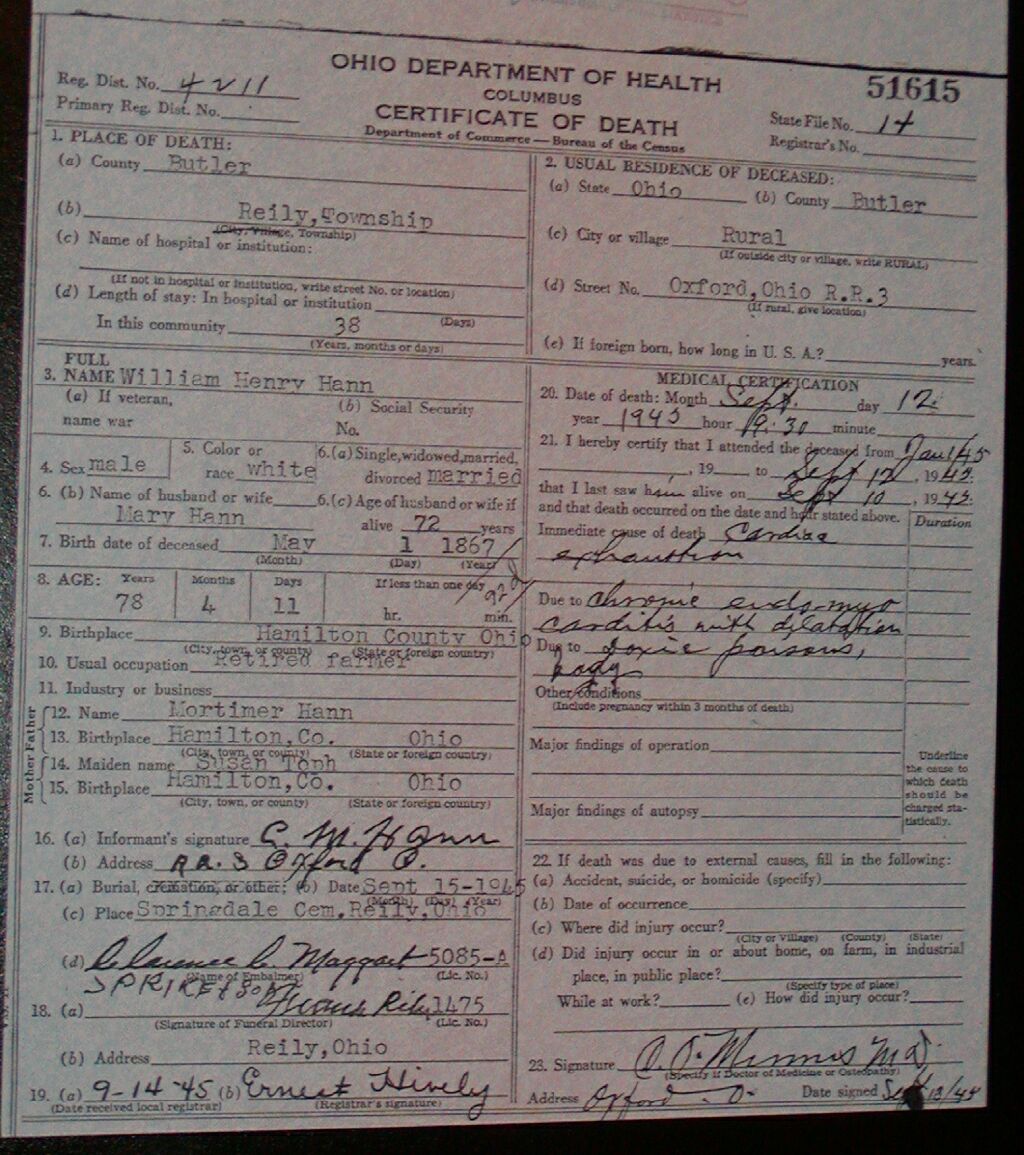 OHIO DEPARTMENT OF HEALTH
COLUMBUS
CERTIFICATE OF DEATH
Department of Commerce — Bureau of the Census
Reg. Dist. No. 4211
Primary Reg. Dist. No.
51615
State File No. 14
Registrar's No.
1. PLACE OF DEATH:
(a) County Butler
(b) Reily,Township
(City, Village, Township)
(c) Name of hospital or institution:
(If not in hospital or institution, write street No. or location)
(d) Length of stay: In hospital or institution
(Days)
In this community 38
(Years, months or days)
2. USUAL RESIDENCE OF DECEASED:
(a) State Ohio (b) County Butler
(c) City or village Rural
(If outside city or village, write RURAL)
(d) Street No. Oxford,Ohio R.R.3
(If rural, give location)
(e) If foreign born, how long in U. S. A.? years.
FULL
3. NAME William Henry Hann
(a) If veteran, (b) Social Security
name war No.
4. Sex male 5. Color or race white 6.(a) Single,widowed,married, divorced married
6. (b) Name of husband or wife 6.(c) Age of husband or wife if
Mary Hann alive 72 years
7. Birth date of deceased May 1 1867
(Month) (Day) (Year)
8. AGE: Years Months Days If less than one day
78 4 11 hr. min.
9. Birthplace Hamilton County Ohio
(City, town, or county) (State or foreign country)
10. Usual occupation Retired farmer
11. Industry or business
Father
12. Name Mortimer Hann
13. Birthplace Hamilton,Co. Ohio
(City, town, or county) (State or foreign country)
Mother
14. Maiden name Susan Toph
15. Birthplace Hamilton,Co. Ohio
(City, town, or county) (State or foreign country)
16. (a) Informant's signature C. M. Hann
(b) Address R.R. 3 Oxford O.
17. (a) Burial, cremation, or other; (b) Date Sept 15-1945
(Month) (Day) (Year)
(c) Place Springdale Cem.Reily,Ohio
(d) Clarence C. Maggart 5085-A
(Name of Embalmer) (Lic. No.)
18. (a) 1475
(Signature of Funeral Director) (Lic. No.)
(b) Address Reily,Ohio
19. (a) 9-14-45 (b) Ernest Hively
(Date received local registrar) (Registrar's signature)
MEDICAL CERTIFICATION
20. Date of death: Month Sept. day 12
year 1945 hour minute
21. I hereby certify that I attended the deceased from Jan 1/45
, 19 to Sept 12, 1945.
that I last saw him alive on Sept 10, 1945.
and that death occurred on the date and hour stated above.
Duration
Immediate cause of death Cardiac
exhaustion
Due to Chronic endo-myo
carditis with dilatation
Due to toxic poisons,
Other conditions
(Include pregnancy within 3 months of death)
Major findings of operation
Major findings of autopsy
Underline
the cause to
which death
should be
charged sta-
tistically.
22. If death was due to external causes, fill in the following:
(a) Accident, suicide, or homicide (specify)
(b) Date of occurrence
(c) Where did injury occur?
(City or Village) (County) (State)
(d) Did injury occur in or about home, on farm, in industrial
place, in public place?
(Specify type of place)
While at work? (e) How did injury occur?
23. Signature MD.
(Specify if Doctor of Medicine or Osteopathy)
Address Oxford O. Date signed Sept 13/45